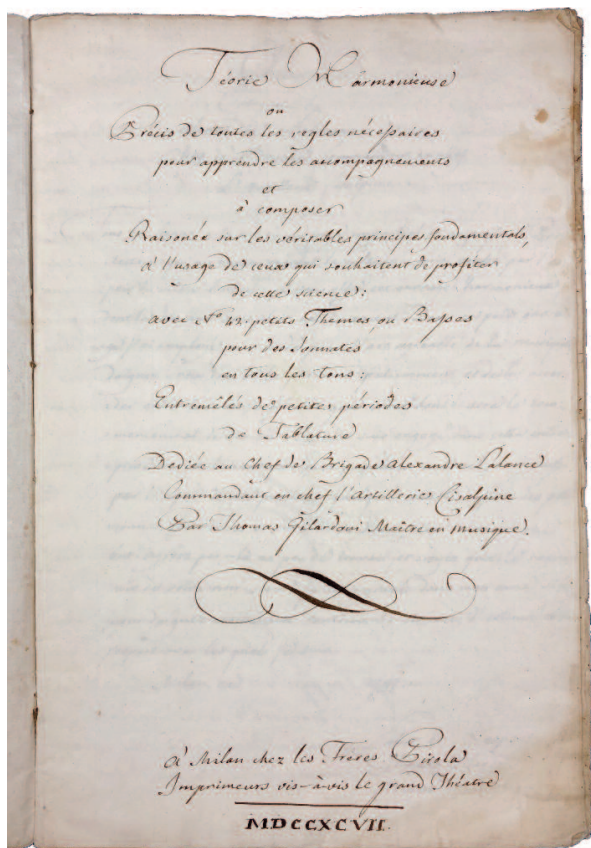 Téorie Harmonieuse
ou
Précis de toutes les regles nécessaires
pour apprendre les accompagnements
et
à composer
Raisonéa sur les véritables principes fondamentals,
à l'usage de ceux qui souhaitent de profiter
de cette science:
avec N.º 42. petits Themes, ou Basses
pour des Sonnates
en tous les tons:
Entremêlés de petites périodes
de Tablature
Dediée au Chef de Brigade Alexandre Lalance
Commandant en chef l'Artillerie Cisalpine
Par Thomas Gilardoni Maître en musique.
à Milan chez les Freres Pirola
Imprimeurs vis-à-vis le grand Théatre
MDCCXCVII.